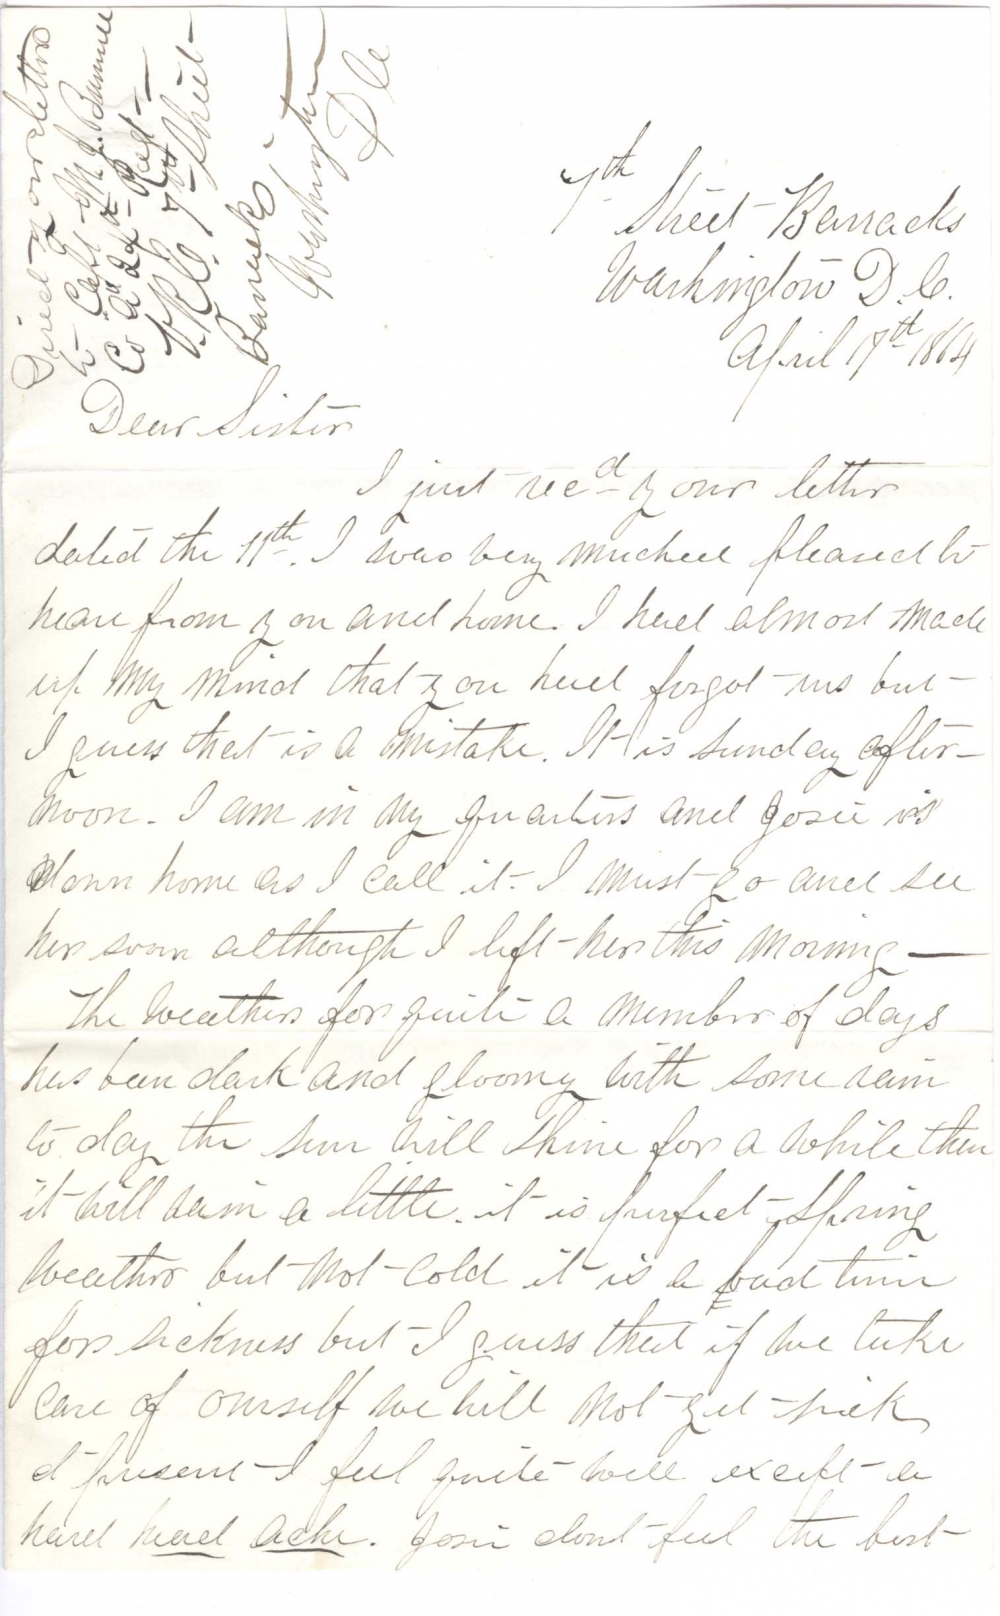 Direct your letters
to Capt M. J. Bunnell
Co "A" 2d Regt
V.R.C. 7th Street
Barracks
Washington
D C
7th
Street Barracks
Washington D.C.
April 17th 1864
Dear Sister
I just recd your letter
dated the 11th. I was very muched pleased to
hear from you and home. I had almost made
up my mind that you had forgot us but
I guess that is a mistake. It is sunday after-
noon. I am in my quarters and Josie is
down home as I call it. I must go and see
her soon although I left her this morning —
The weather for quite a member of days
has been dark and gloomy with some rain
to day the sun will shine for a while then
it will rain a little. it is purfect Spring
weather but not cold it is a bad time
for sickness but I guess that if we take
care of ourself we will not get sick
at present I feel quite well except a
hard head ache. Josie dont feel the best